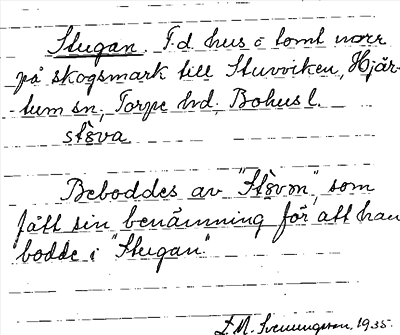 Stugan. F.d. hus o tomt norr
på skogsmark till Stuvviken, Hjär-
tum sn, Torpe hd, Bohus l.
stôva
Beboddes av "Stôvɘn", som
fått sin benämning för att han
bodde i "Stugan".
D.A. Svenungsson. 1935.